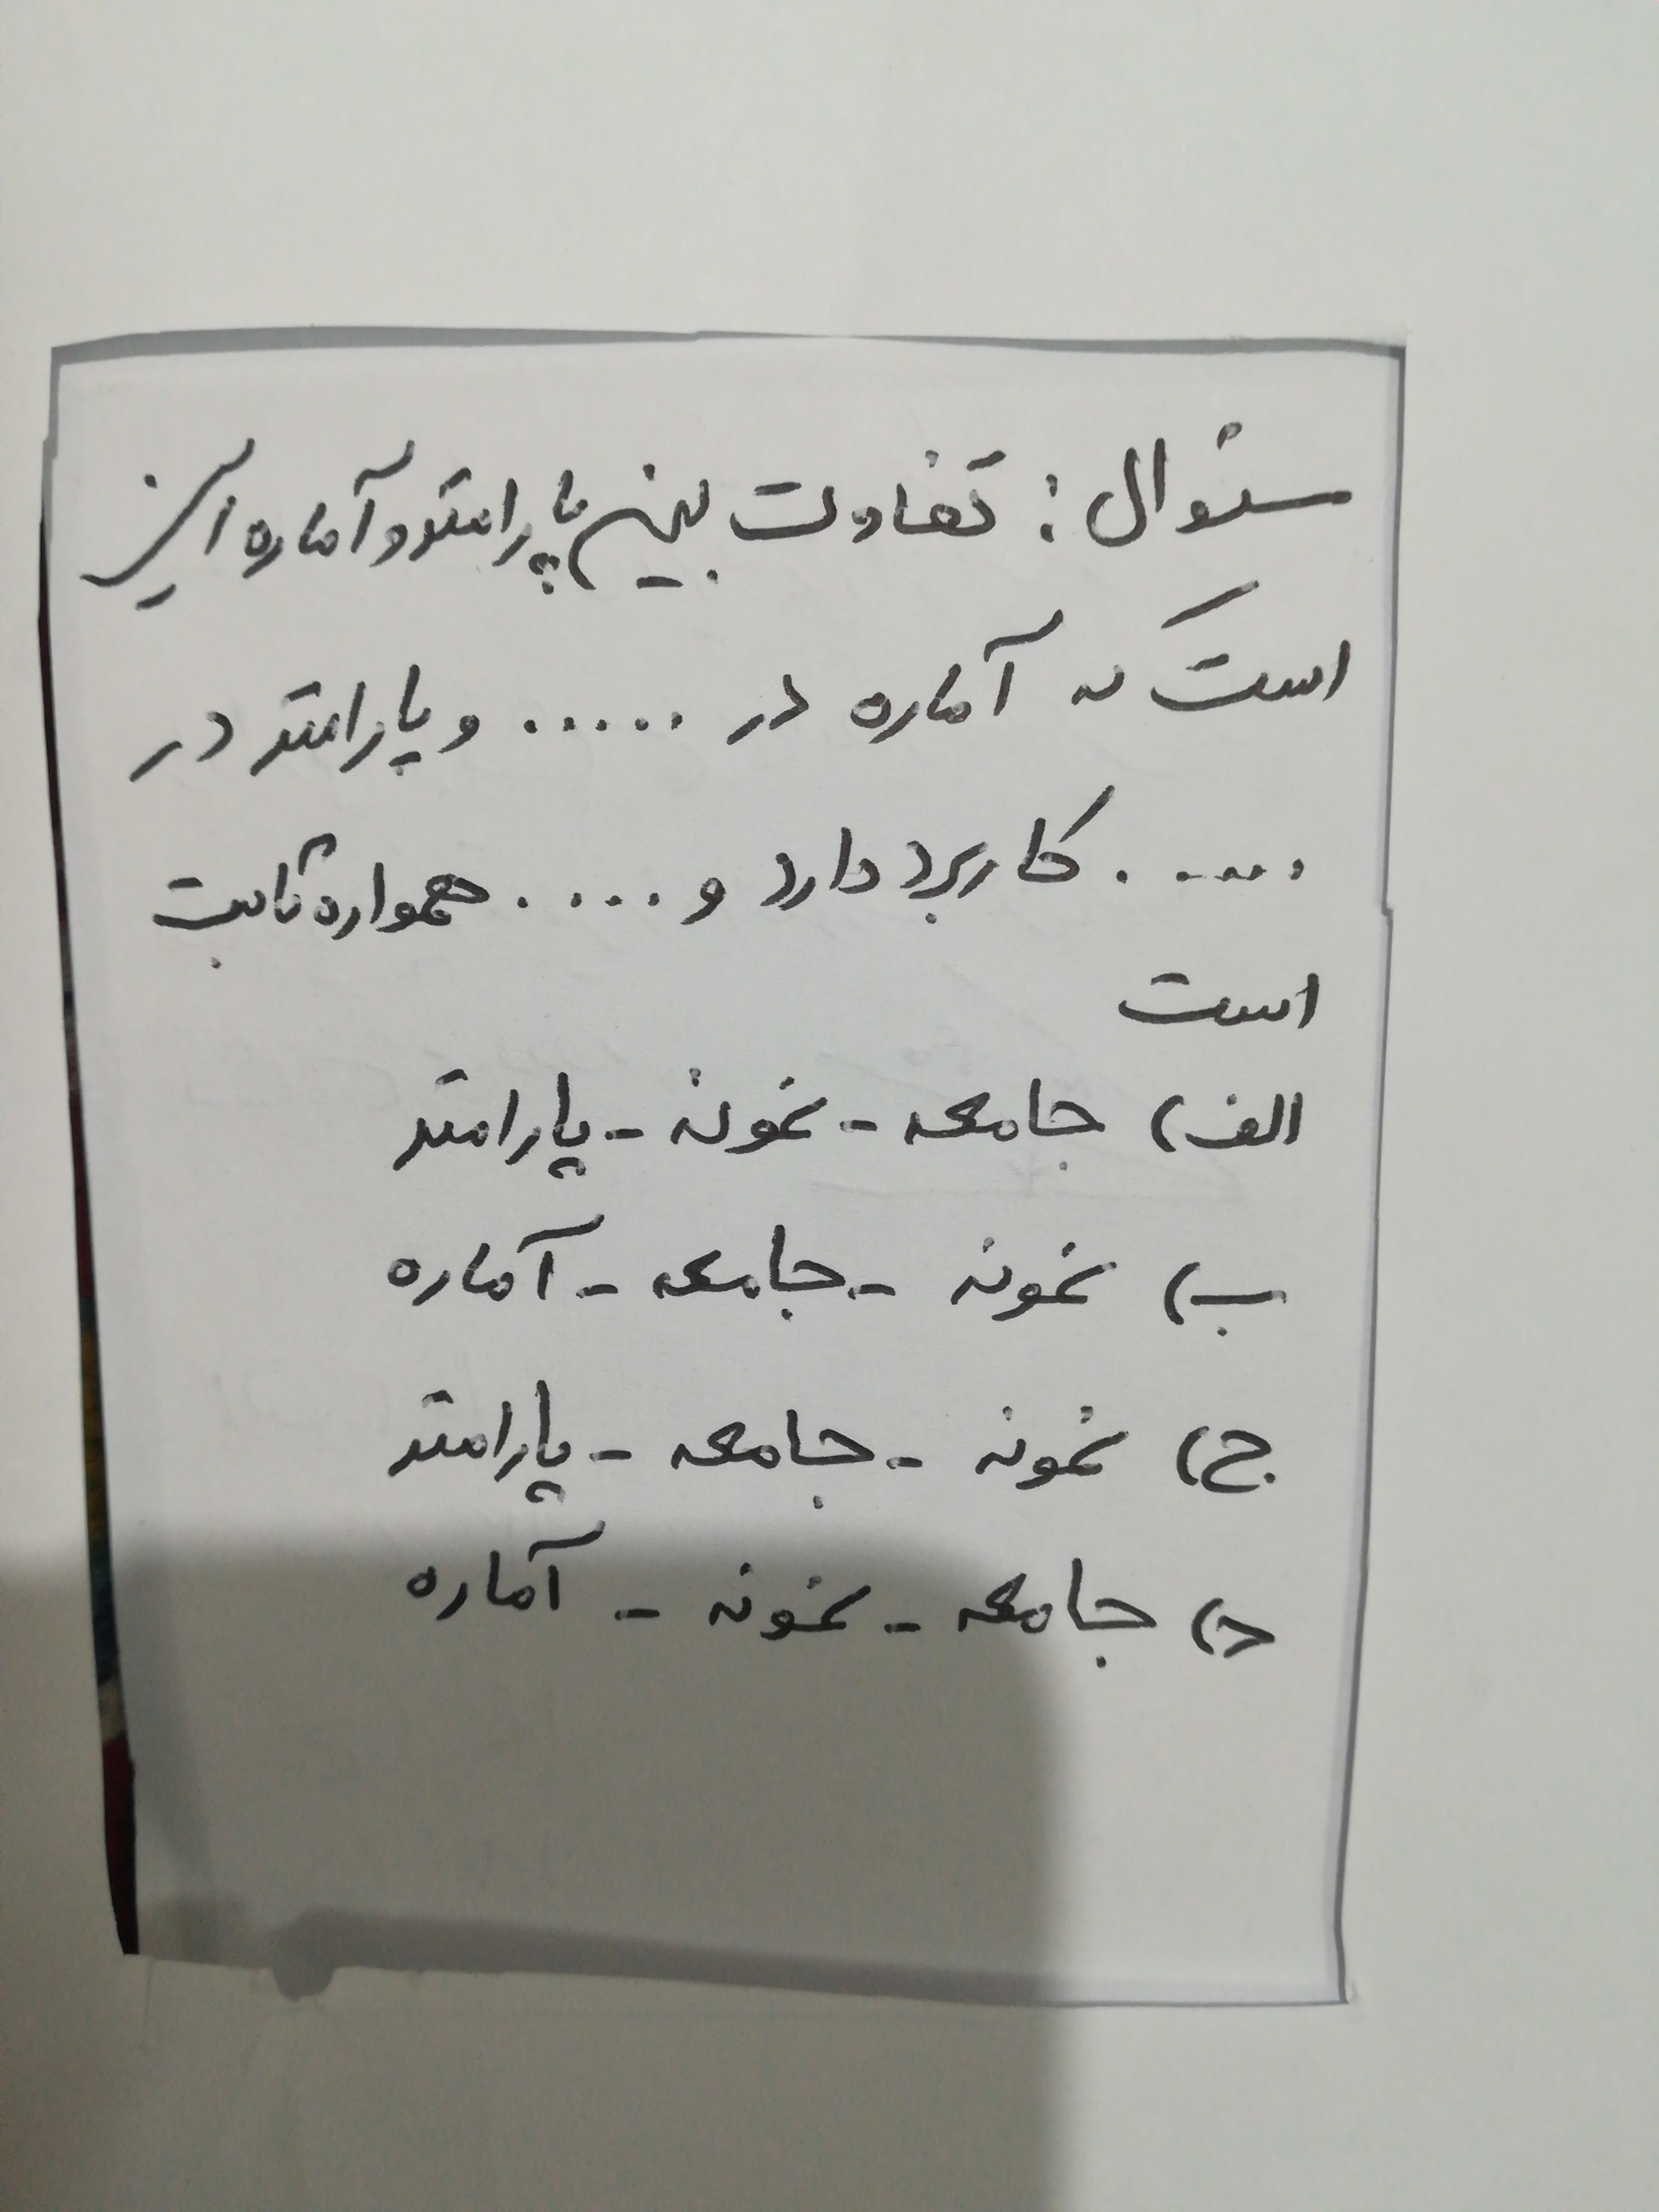 سئوال: تفاوت بین پارامتر و آماره این
است که آماره در ..... و پارامتر در
..... کاربرد دارد و .... همواره ثابت
است
الف) جامعه - نمونه - پارامتر
ب) نمونه - جامعه - آماره
ج) نمونه - جامعه - پارامتر
د) جامعه - نمونه - آماره